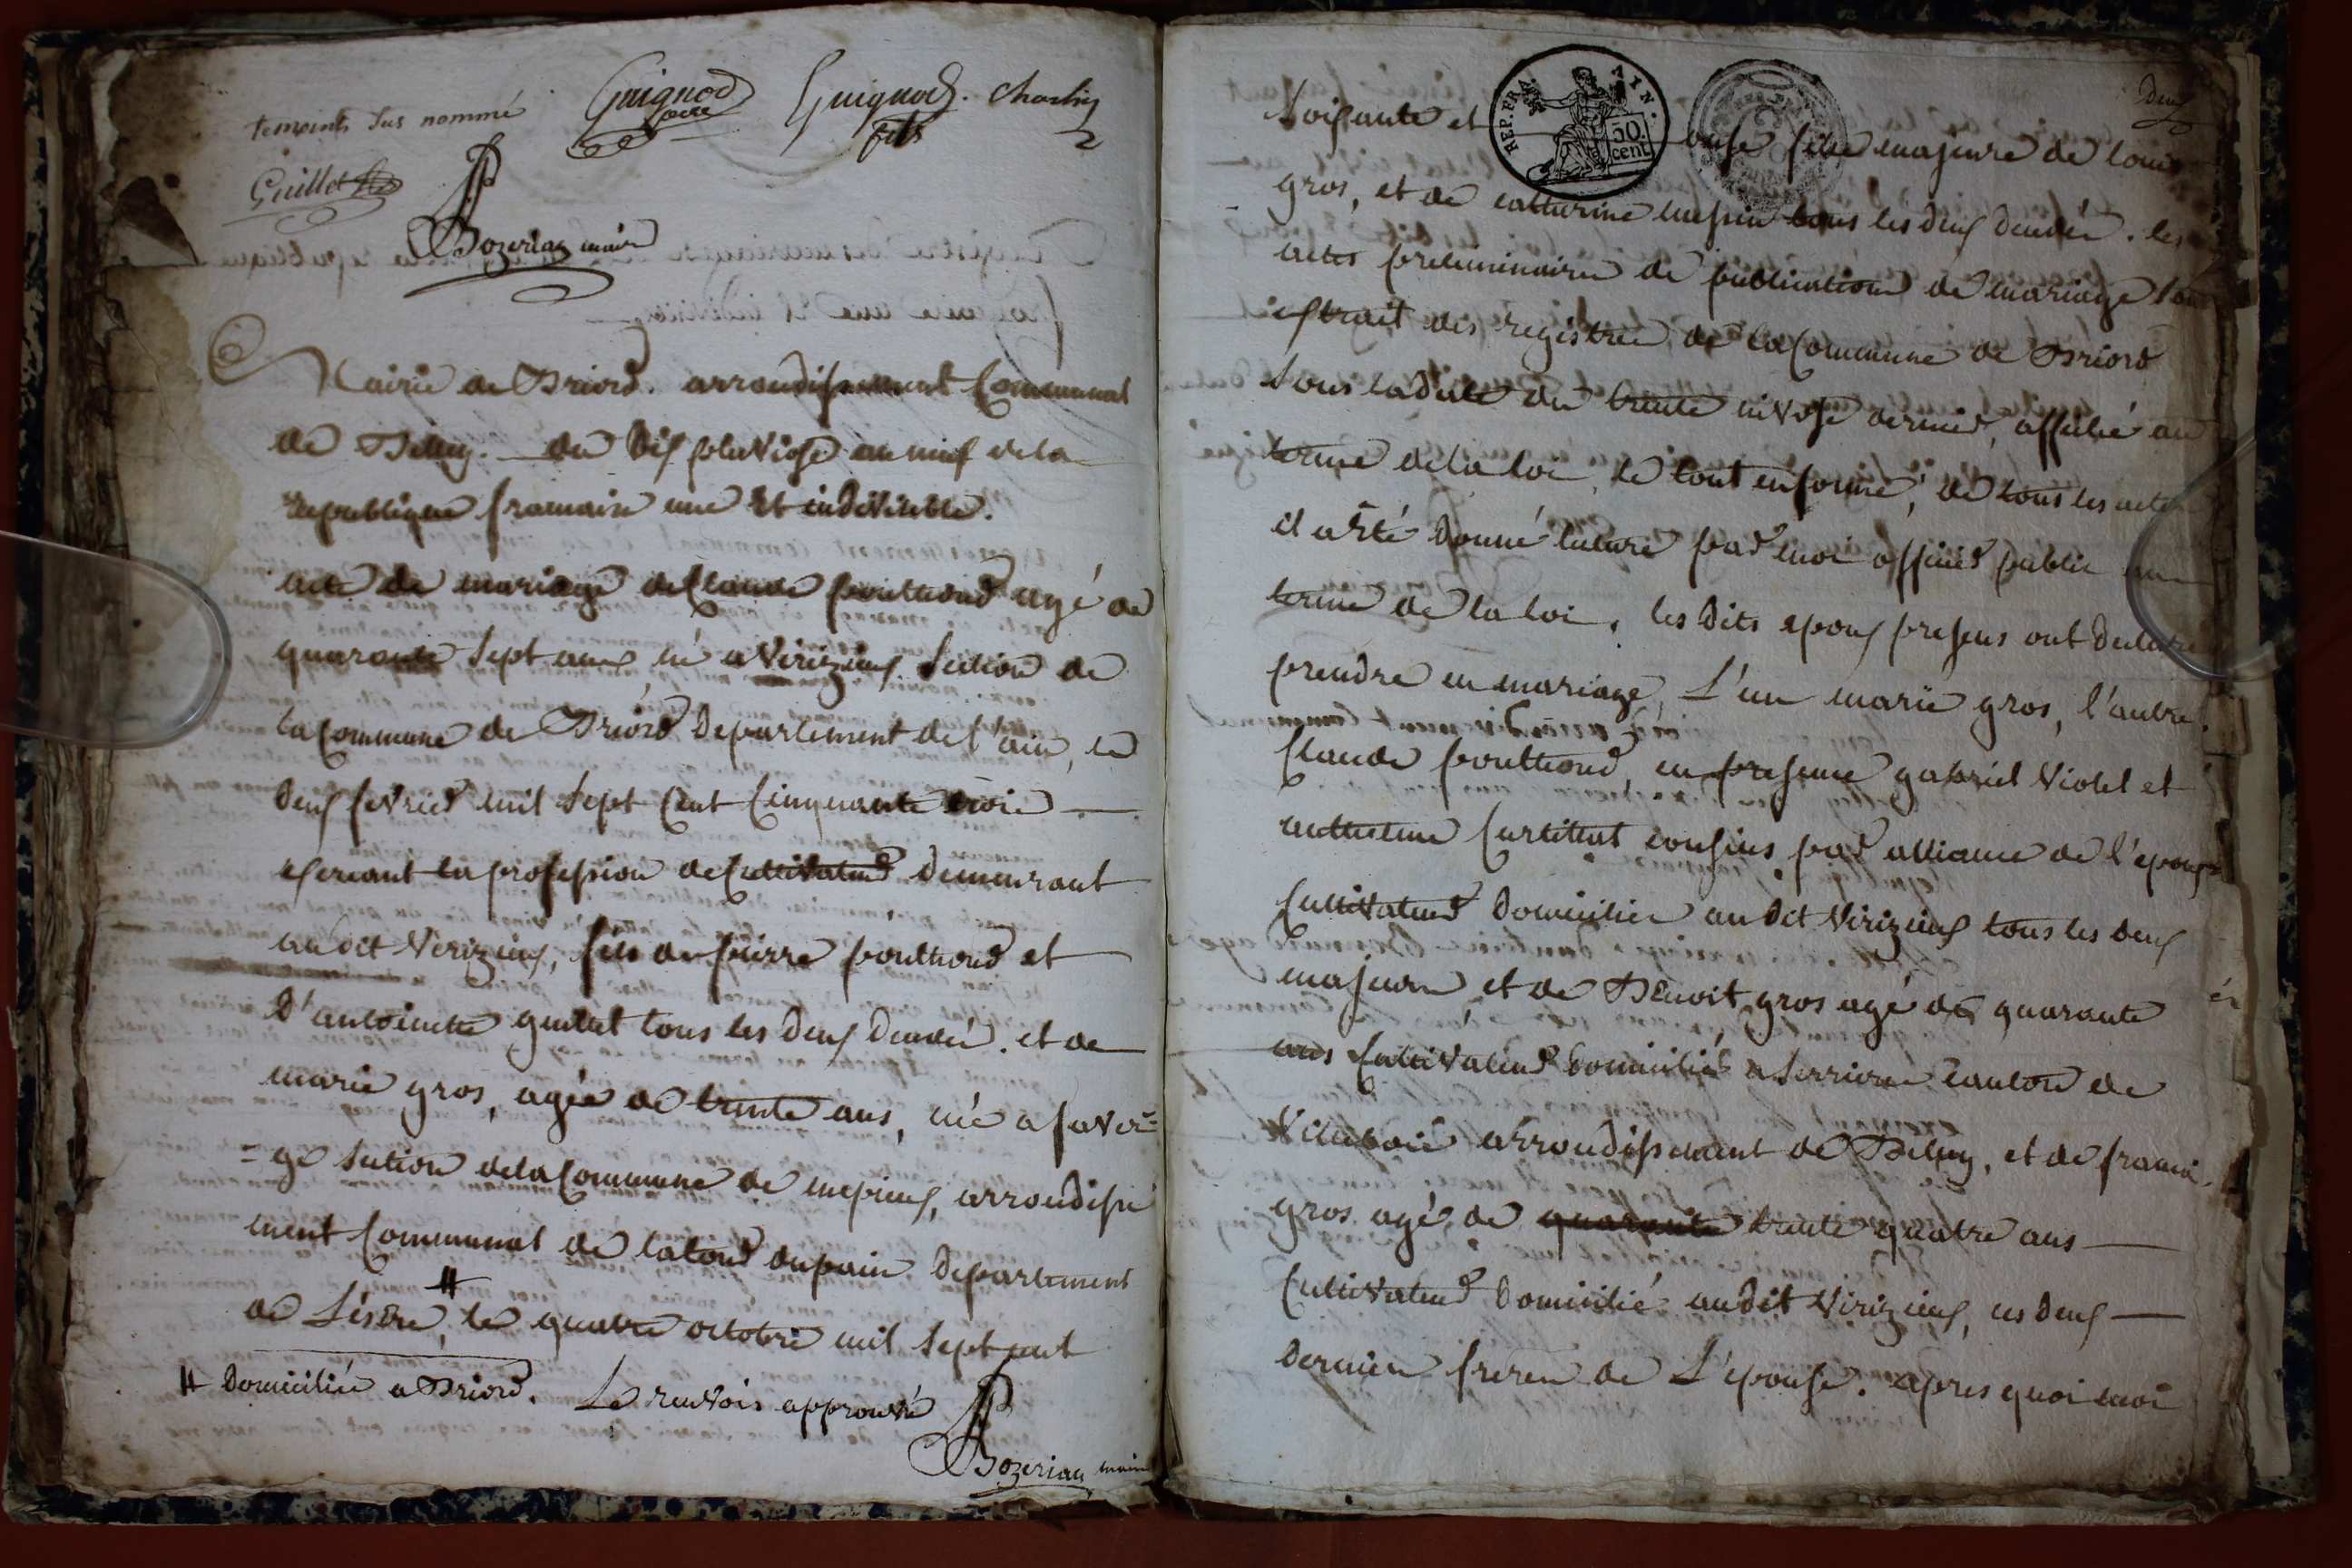 temoints sus nommé Guignod pere Guignod fils Charlin
Guillot
Bozerian maire
Mairie de Briord. arrondissement Communal
de Belley. du dix pluviose an neuf de la
republique francaise une et indivisible.
acte de mariage de Claude pouthond agé de
quarante sept ans né a Verizieux section de
la Commune de Briord Departement de l'ain, le
deux fevrier mil sept Cent Cinquante trois
exercant la profession de Cultivateur demeurant
au dit Verizieux, fils de pierre pouthond et
d'antoinette guillet tous les deux decedés. et de
marie gros, agée de trente ans, née a faver=
=ge section de la Commune de mepieux, arrondisse
ment Communal de latour dupain Departement
de L'isère, # le quatre octobre mil sept cent
# Domiciliée a Briord. Le renvois approuvé
Bozerian maire
deux
soixante et onse REP. FRA. 50. cent. AIN. fille majeure de louis
gros, et de catherine tous les deux decedés. les
actes preliminaires de publications de mariage sont
extrait des registres de la Commune de Briord
sous la date du trente nivose dernier, affiché au
terme de la loi, le tout en forme; de tous les actes
il a été donné lecture par moi officier public au
terme de la loi, les dits epoux presens ont declaré
prendre en mariage, L'un marie gros, l'autre
Claude pouthond, en presence gabriel Violet et
anthelme Curtillat cousins par alliance de l'epoux
Cultivateurs domiciliés au dit Verizieux tous les deux
majeurs, et de Benoit gros agé de quarante
ans Cultivateur domicilié a serriere Canton de
Villeboie arrondissement de Belley, et de francois
gros agé de quarante trente quatre ans
Cultivateur domicilié au dit Verizieux, ces deux
derniers freres de L'epouse. apres quoi moi